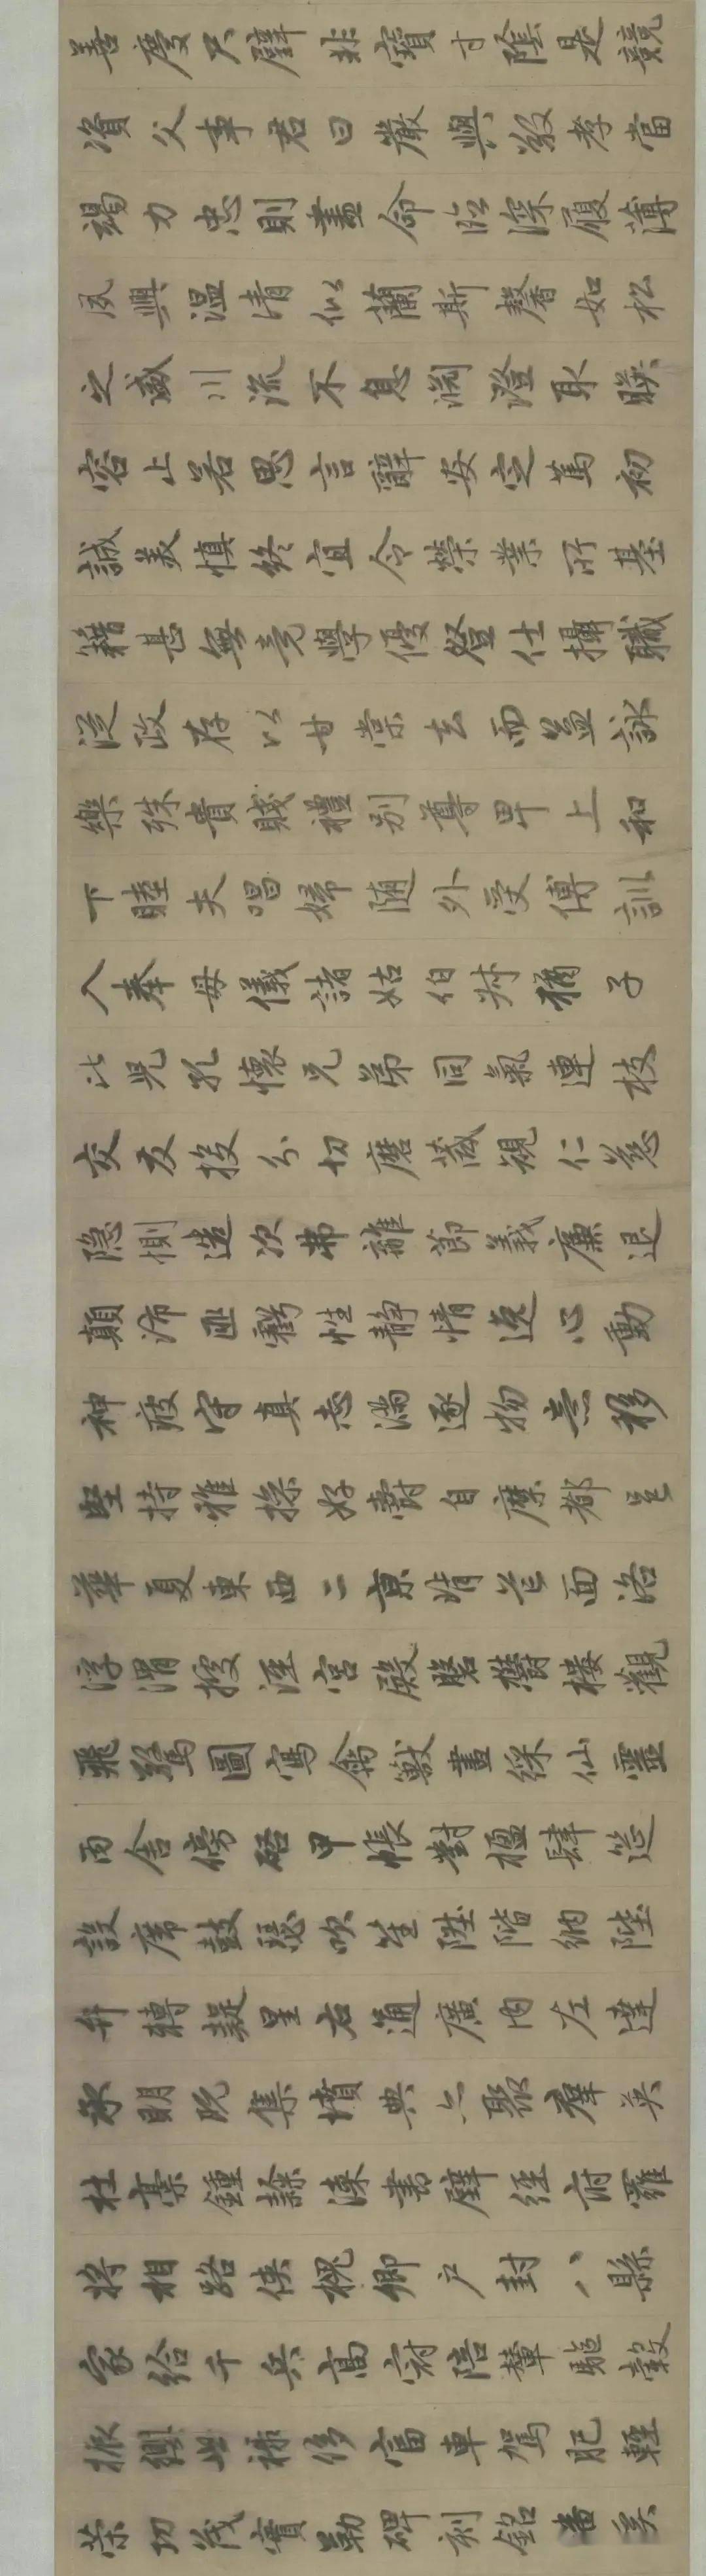 善慶尺璧非寶寸陰是競
資父事君曰嚴與敬孝當
竭力忠則盡命臨深履薄
夙興温清似蘭斯馨如松
之盛川流不息淵澄取暎
容止若思言辭安定篤初
誠美慎終宜令榮業所基
籍甚無竟學優登仕攝職
從政存以甘棠去而益詠
樂殊貴賤禮別尊卑上和
下睦夫唱婦随外受傅訓
入奉母儀諸姑伯叔猶子
比兒孔懷兄弟同氣連枝
交友投分切磨箴規仁慈
隐惻造次弗離節義廉退
顛沛匪虧性静情逸心動
神疲守真志滿逐物意移
堅持雅操好爵自縻都邑
華夏東西二京背芒面洛
浮渭據涇宮殿盤鬱樓觀
飛驚圖寫禽獸畫綵仙靈
丙舍傍啓甲帳對楹肆筵
設席鼓瑟吹笙陞階納陛
弁轉疑星右通廣内左達
承明既集墳典亦聚群英
杜稾鍾隸漆書壁經府羅
將相路俠槐卿戶封八縣
家給千兵高冠陪輦驅轂
振纓世祿侈富車駕肥輕
策功茂實勒碑刻銘番奚